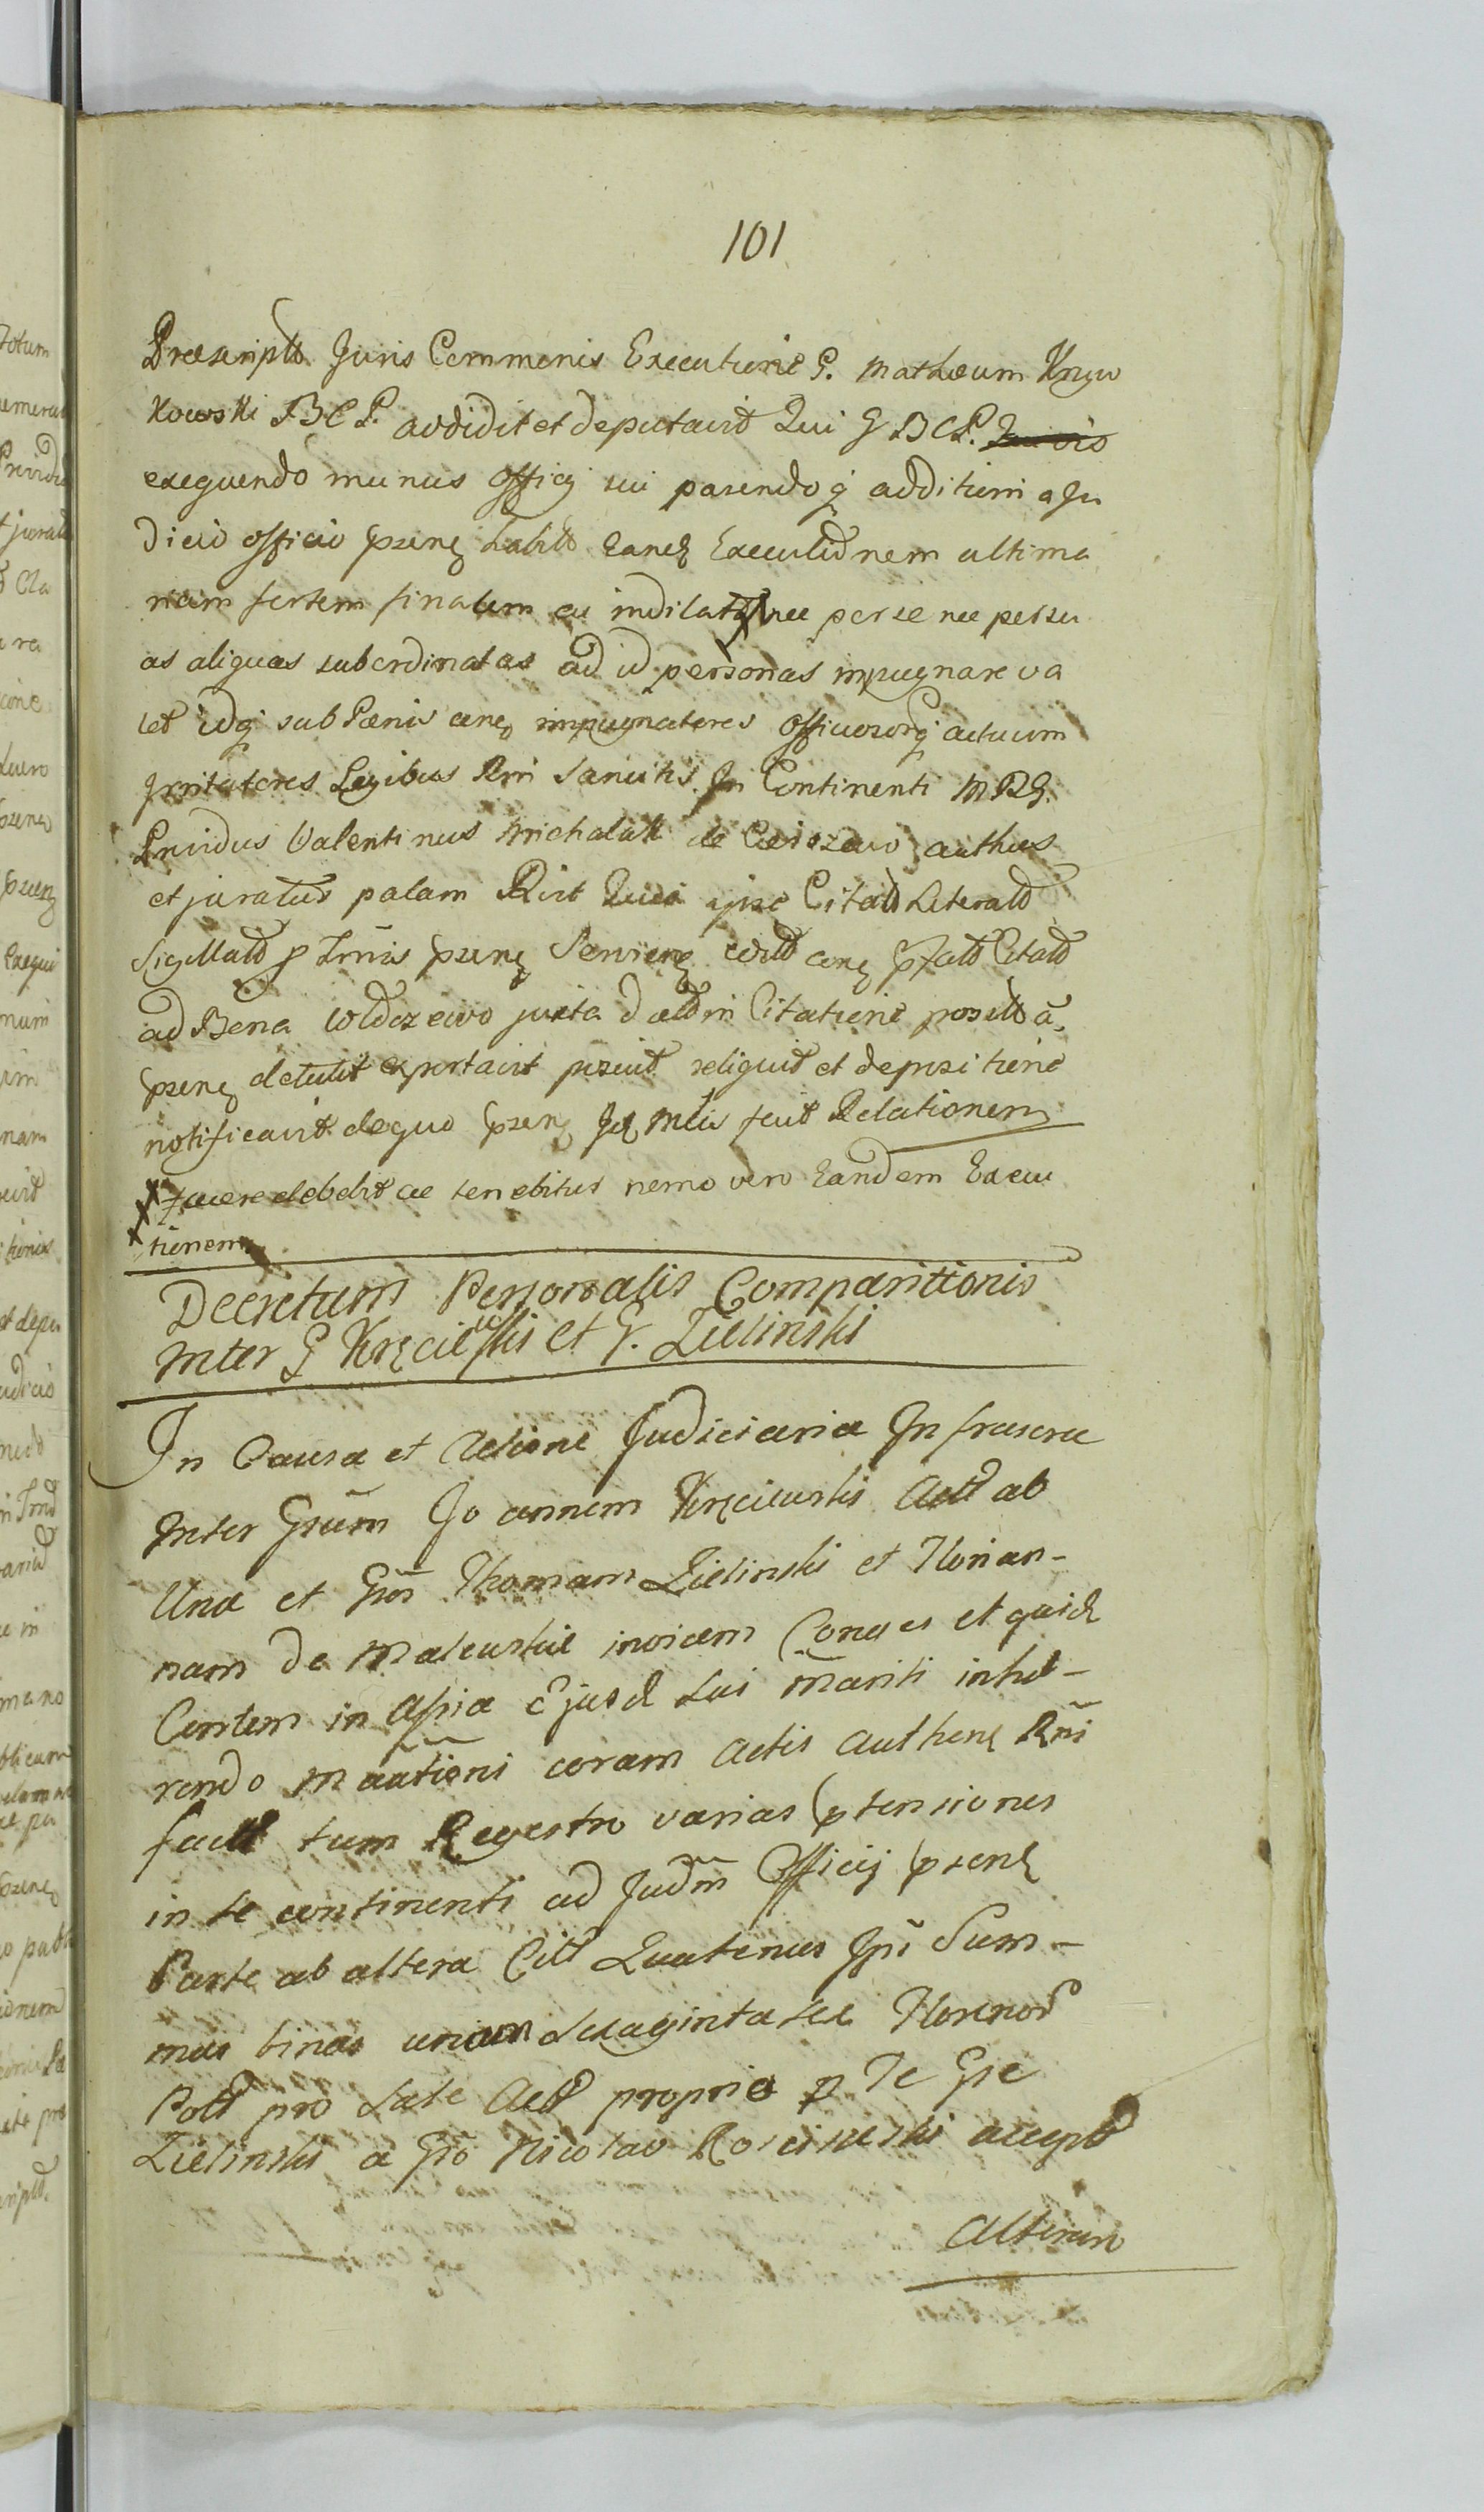 101
Præscripto Juris Communis Executione G. Mathæum Kryw
kowski BCP. addidit et deputavit Qui G BCP.
exequendo munus officij sui parendo q additioni a Ju
dicio officio psenq habito eandq Executionem ultima
riam fortem finalem ac indilatt nec per se nec per su
as aliquas subordinatas ad id personas impugnare va
let idq sub Pænis cenq impugnatores officiosorq actuum
Irritatores Legibus Rni sancitis. In Continenti MRG.
Providus Valentinus Michalak de authus
et juratus palam Rivit Quia ipse Citato Literato
Sigillato p Tmis psenq Servienq edito cenq pfato Citato
ad Bona Wloczewo juxta datm in Citatione posito a,
psenq detulit exportavit posuit reliquit et depositione
notificavit de quo psenq Jq Mtis fecit Relationem
facere debebit ac tenebitur nemo vero Eandem Execu
tionem
Decretum Personalis Comparitionis
Inter G Kręciewski et G. Zielinski
In Causa et Actione Judiciaria Infrascra
Inter Grum Joannem Kręciewski Actt ab
Una et Gros Thomam Zielinski et Florian-
nam de Malewskie invicem Conges et quidq
Contem in Assia Ejusd Sui mariti inhæ-
rendo Mantioni coram Actis Authenq Rni
factt tum Regestro varias ptensiones
in se continenti ad Judm Officij psenq
Parte ab altera Citt Quatenus Ipsi Sum-
mas binas unam sexaginta sex Florenor
Poll pro Sale Actt proprio p Te Gse
Zielinski a Gro Nicolao Rosciszewski accepto
Alteram